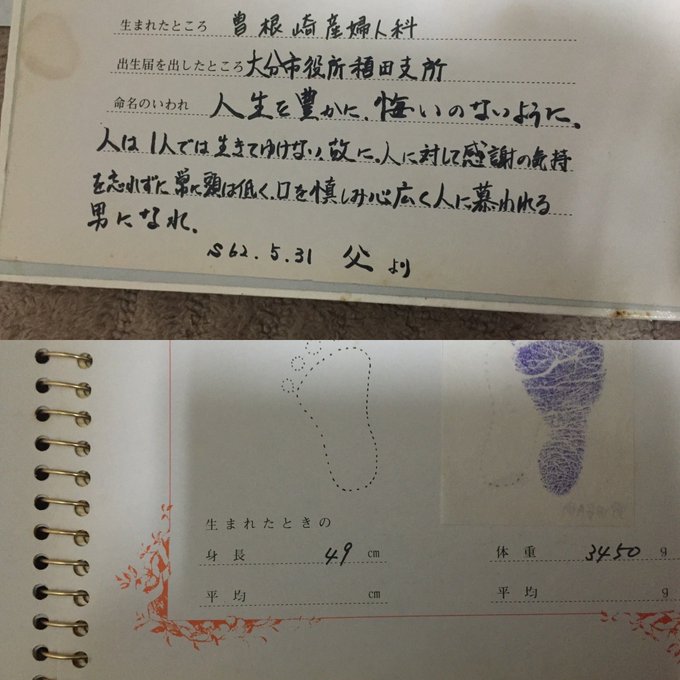 生まれたところ 曽根崎産婦人科
出生届を出したところ 大分市役所稙田支所
命名のいわれ 人生を豊かに、悔いのないように、
人は1人では生きてゆけない、故に、人に対して感謝の気持
を忘れずに常に頭は低く、口を慎しみ心広く人に慕われる
男になれ。
S62.5.31 父より
生まれたときの
身長 49 cm
体重 3450 g
平均 cm
平均 g